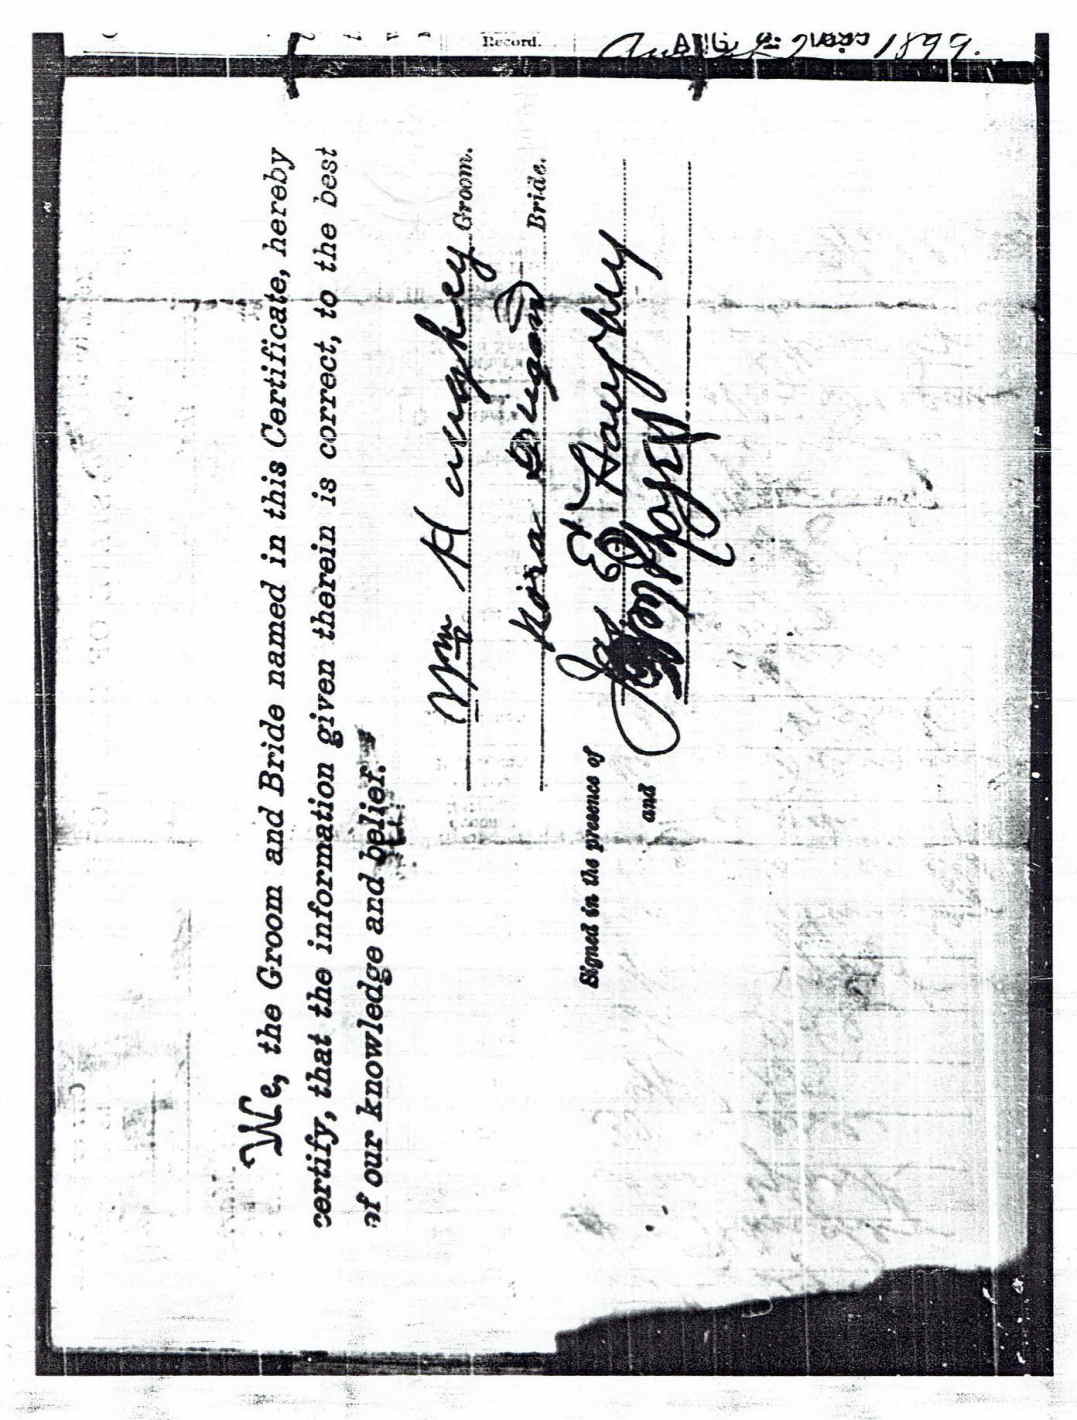 Record.
1899.
We, the Groom and Bride named in this Certificate, hereby
certify, that the information given therein is correct, to the best
of our knowledge and belief.
Wm Haughey Groom.
Nora Dugan Bride.
Signed in the presence of Jas E Haughey
and